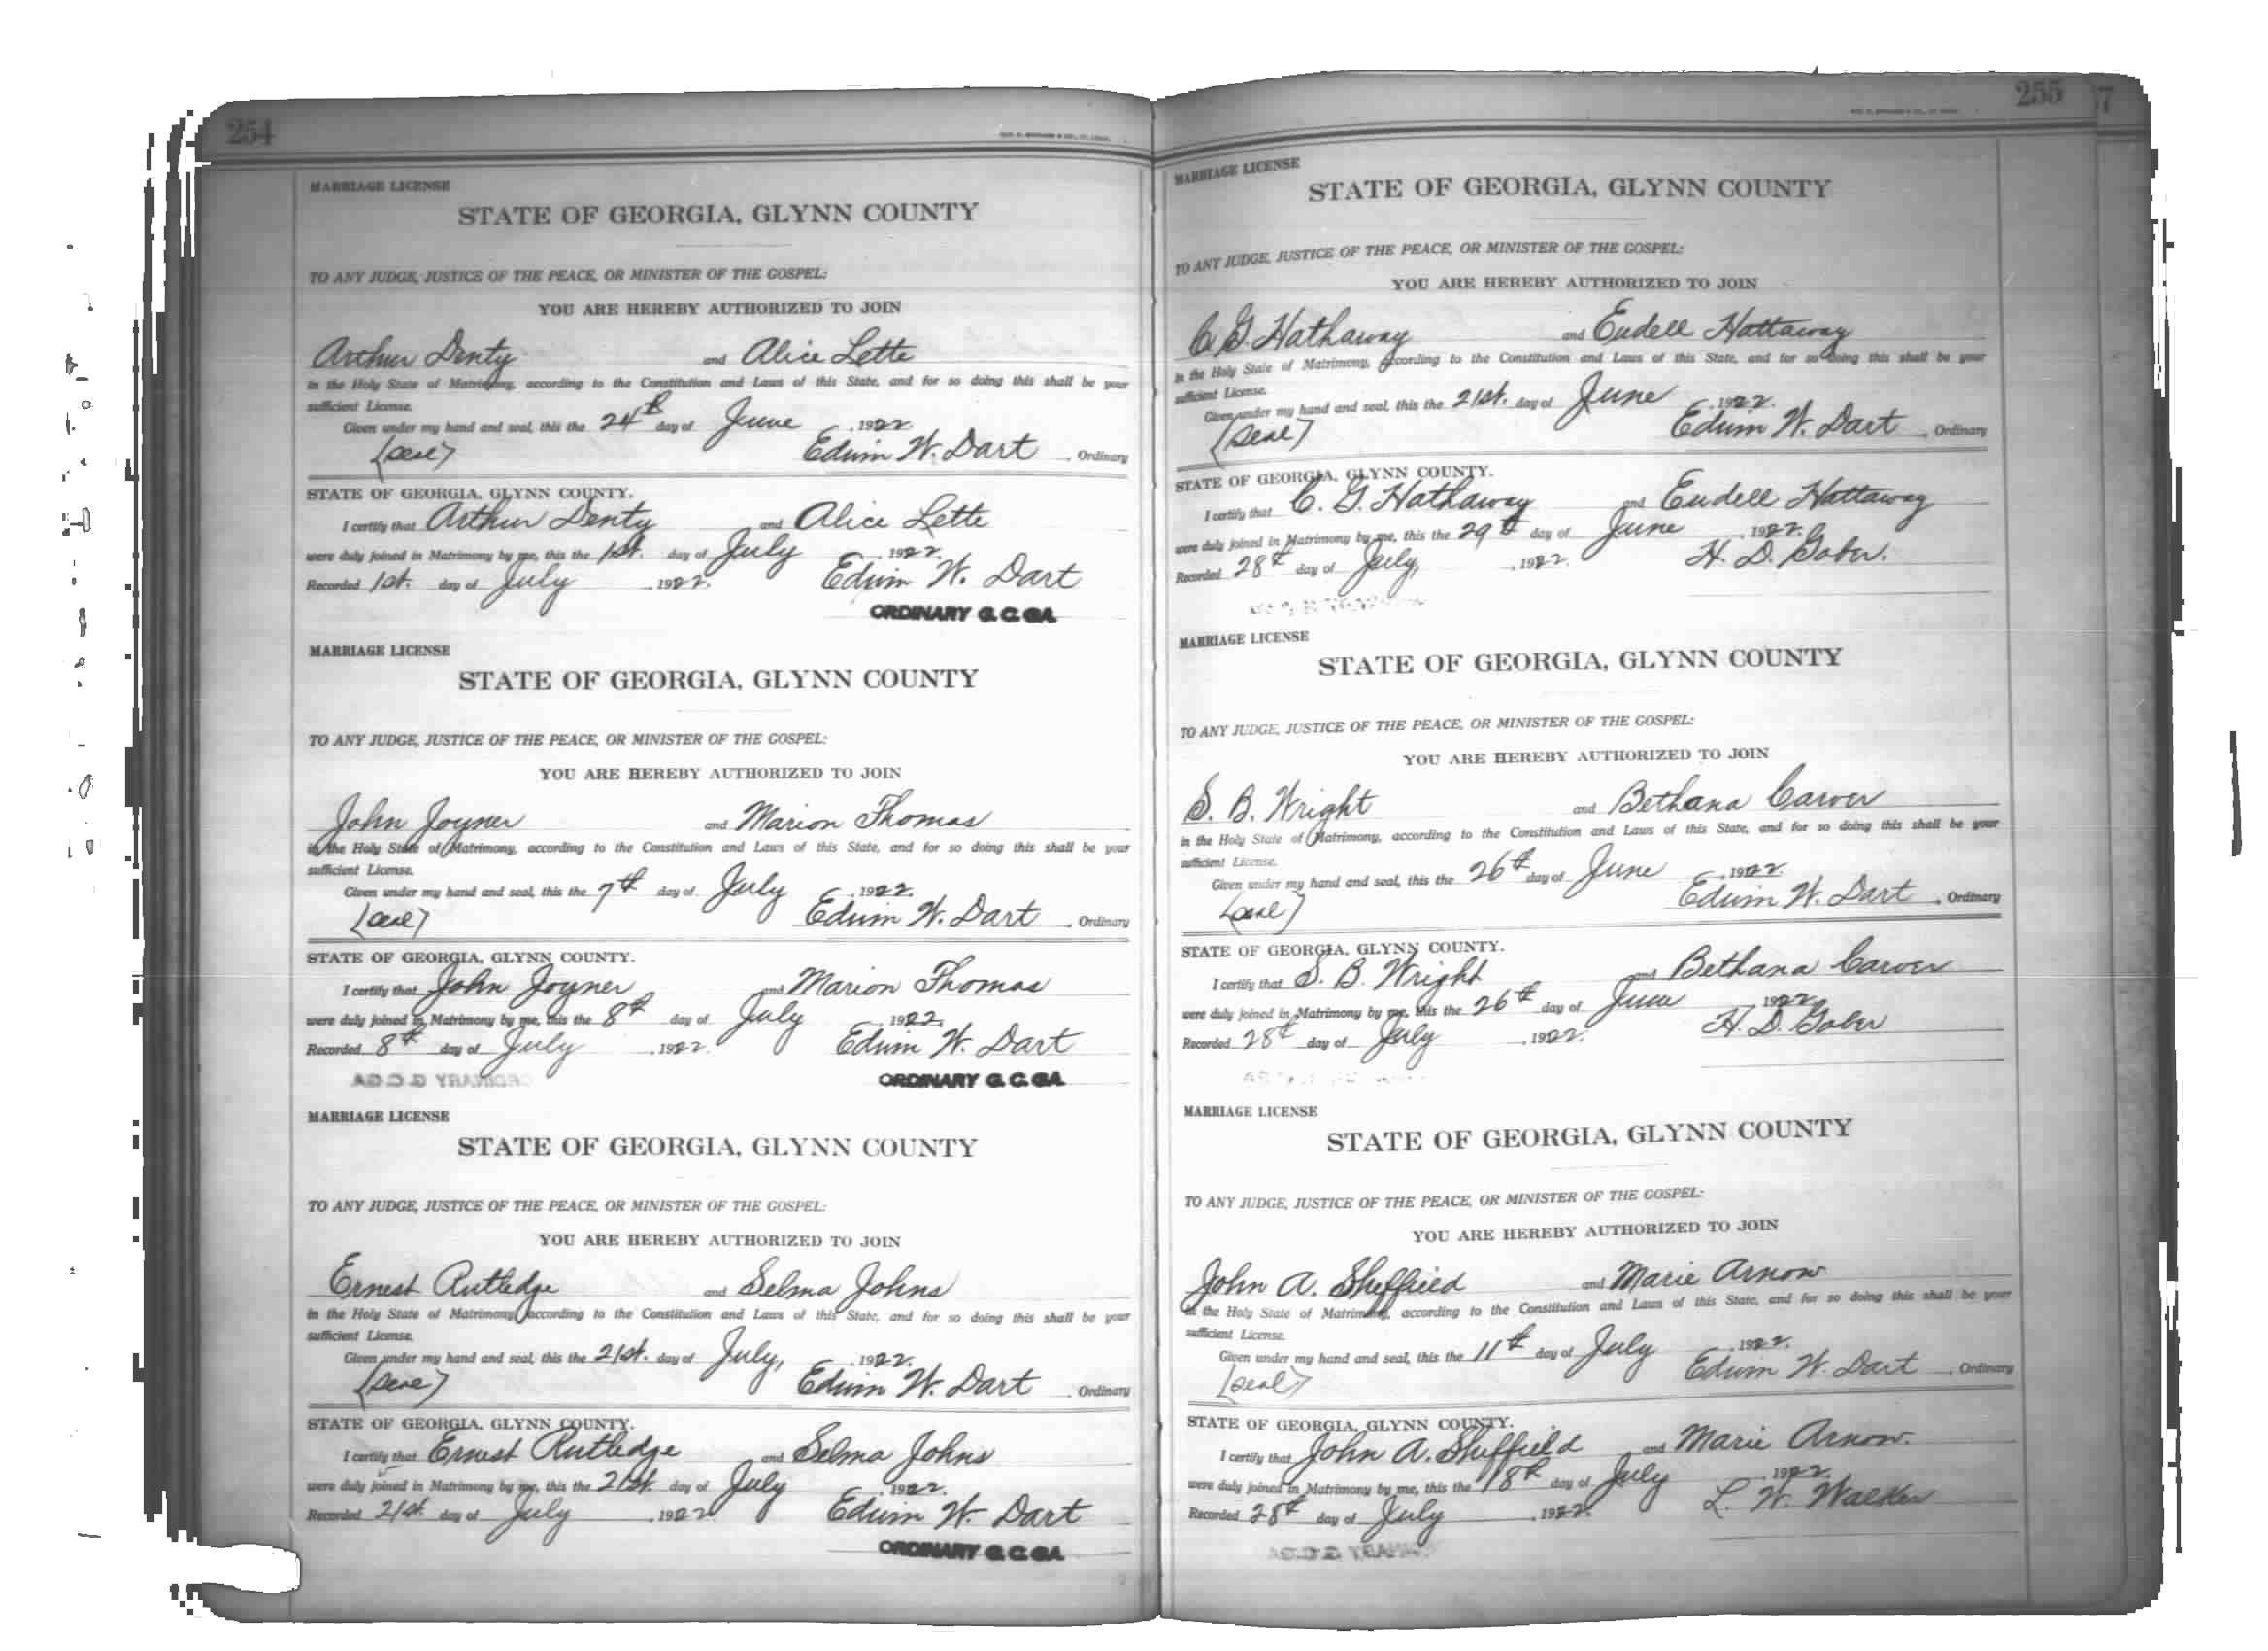 254
MARRIAGE LICENSE
STATE OF GEORGIA, GLYNN COUNTY
TO ANY JUDGE, JUSTICE OF THE PEACE, OR MINISTER OF THE GOSPEL:
YOU ARE HEREBY AUTHORIZED TO JOIN
Arthur Denty and Alice Lette
in the Holy State of Matrimony, according to the Constitution and Laws of this State, and for so doing this shall be your
sufficient License.
Given under my hand and seal, this the 24th day of June, 1922.
(seal) Edwin W. Dart, Ordinary
STATE OF GEORGIA, GLYNN COUNTY.
I certify that Arthur Denty and Alice Lette
were duly joined in Matrimony by me, this the 1st. day of July, 1922.
Recorded 1st. day of July, 1922. Edwin W. Dart
ORDINARY G. C. GA.
MARRIAGE LICENSE
STATE OF GEORGIA, GLYNN COUNTY
TO ANY JUDGE, JUSTICE OF THE PEACE, OR MINISTER OF THE GOSPEL:
YOU ARE HEREBY AUTHORIZED TO JOIN
John Joyner and Marion Thomas
in the Holy State of Matrimony, according to the Constitution and Laws of this State, and for so doing this shall be your
sufficient License.
Given under my hand and seal, this the 7th day of July, 1922.
(seal) Edwin W. Dart, Ordinary
STATE OF GEORGIA, GLYNN COUNTY.
I certify that John Joyner and Marion Thomas
were duly joined in Matrimony by me, this the 8th day of July, 1922.
Recorded 8th day of July, 1922. Edwin W. Dart
ORDINARY G. C. GA.
MARRIAGE LICENSE
STATE OF GEORGIA, GLYNN COUNTY
TO ANY JUDGE, JUSTICE OF THE PEACE, OR MINISTER OF THE GOSPEL:
YOU ARE HEREBY AUTHORIZED TO JOIN
Ernest Rutledge and Selma Johns
in the Holy State of Matrimony, according to the Constitution and Laws of this State, and for so doing this shall be your
sufficient License.
Given under my hand and seal, this the 21st. day of July, 1922.
(seal) Edwin W. Dart, Ordinary
STATE OF GEORGIA, GLYNN COUNTY.
I certify that Ernest Rutledge and Selma Johns
were duly joined in Matrimony by me, this the 21st. day of July, 1922.
Recorded 21st. day of July, 1922 Edwin W. Dart
ORDINARY G. C. GA.
255 7
MARRIAGE LICENSE
STATE OF GEORGIA, GLYNN COUNTY
TO ANY JUDGE, JUSTICE OF THE PEACE, OR MINISTER OF THE GOSPEL:
YOU ARE HEREBY AUTHORIZED TO JOIN
C. G. Hathaway and Eudell Hattaway
in the Holy State of Matrimony, according to the Constitution and Laws of this State, and for so doing this shall be your
sufficient License.
Given under my hand and seal, this the 21st. day of June, 1922.
(seal) Edwin W. Dart, Ordinary
STATE OF GEORGIA, GLYNN COUNTY.
I certify that C. G. Hathaway and Eudell Hattaway
were duly joined in Matrimony by me, this the 29th day of June, 1922.
Recorded 28th day of July, 1922. H. D. Gober.
MARRIAGE LICENSE
STATE OF GEORGIA, GLYNN COUNTY
TO ANY JUDGE, JUSTICE OF THE PEACE, OR MINISTER OF THE GOSPEL:
YOU ARE HEREBY AUTHORIZED TO JOIN
S. B. Wright and Bethana Carver
in the Holy State of Matrimony, according to the Constitution and Laws of this State, and for so doing this shall be your
sufficient License.
Given under my hand and seal, this the 26th day of June, 1922.
(seal) Edwin W. Dart, Ordinary
STATE OF GEORGIA, GLYNN COUNTY.
I certify that S. B. Wright and Bethana Carver
were duly joined in Matrimony by me, this the 26th day of June 1922.
Recorded 28th day of July, 1922. H. D. Gober
MARRIAGE LICENSE
STATE OF GEORGIA, GLYNN COUNTY
TO ANY JUDGE, JUSTICE OF THE PEACE, OR MINISTER OF THE GOSPEL:
YOU ARE HEREBY AUTHORIZED TO JOIN
John A. Sheffield and Marie Arnow
in the Holy State of Matrimony, according to the Constitution and Laws of this State, and for so doing this shall be your
sufficient License.
Given under my hand and seal, this the 11th day of July, 1922.
(seal) Edwin W. Dart, Ordinary
STATE OF GEORGIA, GLYNN COUNTY.
I certify that John A. Sheffield and Marie Arnow.
were duly joined in Matrimony by me, this the 18th day of July, 1922.
Recorded 28th day of July, 1922. L. W. Walker